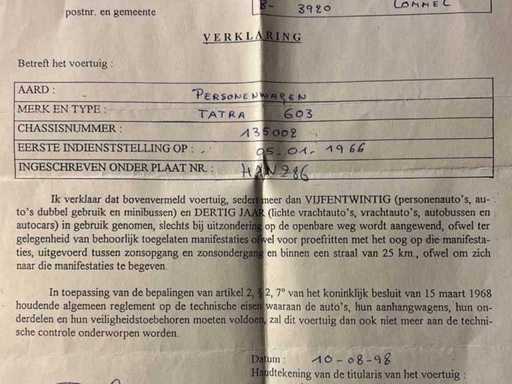 postnr. en gemeente B- 3920 LOMMEL
VERKLARING
Betreft het voertuig :
AARD : PERSONENWAGEN
MERK EN TYPE : TATRA 603
CHASSISNUMMER : 135002
EERSTE INDIENSTSTELLING OP : 05-01-1966
INGESCHREVEN ONDER PLAAT NR. : HAN286
Ik verklaar dat bovenvermeld voertuig, sedert meer dan VIJFENTWINTIG (personenauto's, au-
to's dubbel gebruik en minibussen) en DERTIG JAAR (lichte vrachtauto's, vrachtauto's, autobussen en
autocars) in gebruik genomen, slechts bij uitzondering op de openbare weg wordt aangewend, ofwel ter
gelegenheid van behoorlijk toegelaten manifestaties ofwel voor proefritten met het oog op die manifesta-
ties, uitgevoerd tussen zonsopgang en zonsondergang en binnen een straal van 25 km., ofwel om zich
naar die manifestaties te begeven.
In toepassing van de bepalingen van artikel 2, § 2, 7° van het koninklijk besluit van 15 maart 1968
houdende algemeen reglement op de technische eisen waaraan de auto's, hun aanhangwagens, hun on-
derdelen en hun veiligheidstoebehoren moeten voldoen, zal dit voertuig dan ook niet meer aan de techni-
sche controle onderworpen worden.
Datum : 10-08-98
Handtekening van de titularis van het voertuig :